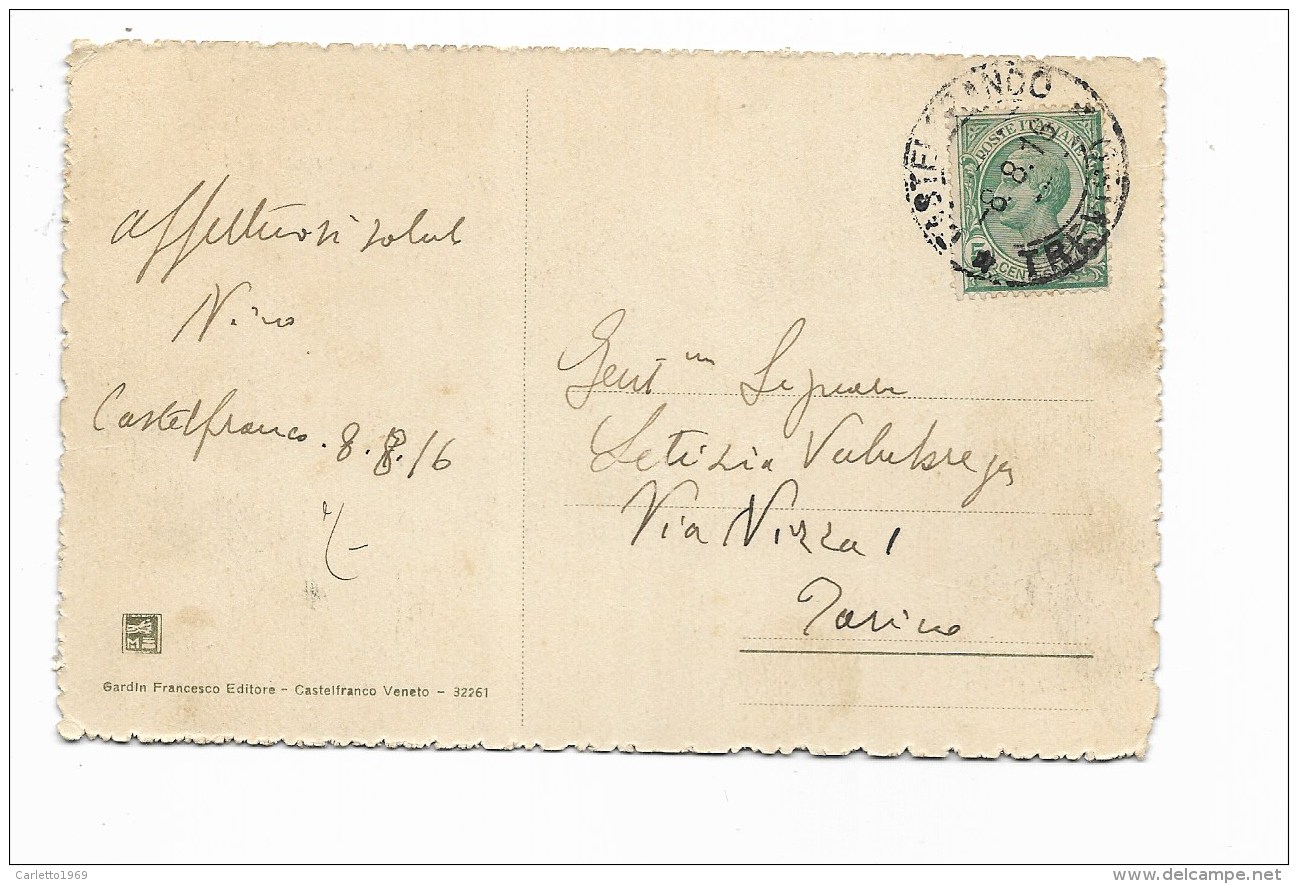 affettuosi saluti
Nino
Castelfranco. 8.8.16
Gardin Francesco Editore - Castelfranco Veneto - 32261
POSTE ITALIANE
CENT
-8.8.16
TREVISO
Gent ma Signora
Letizia Valabrega
Via Nizza 1
Torino
Carletto1969
delcampe.net